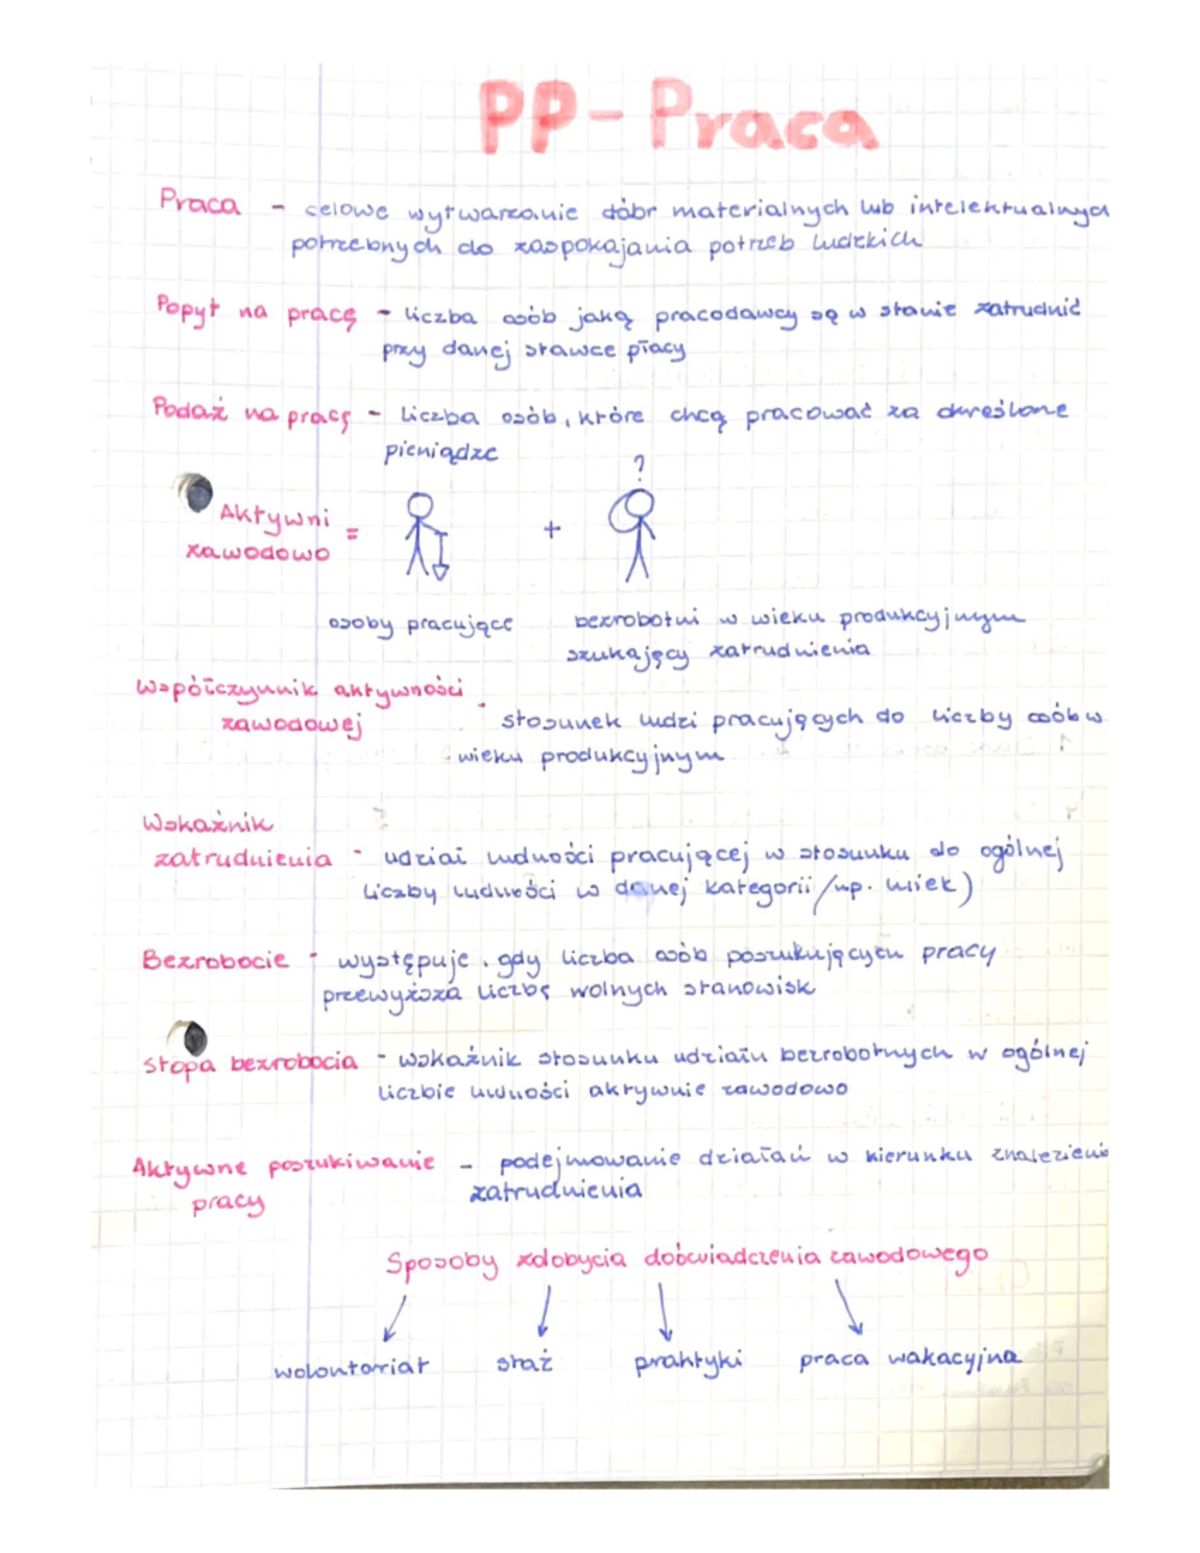 PP - Praca
Praca - celowe wytwarzanie dóbr materialnych lub intelektualnych
potrzebnych do zaspokajania potrzeb ludzkich
Popyt na pracę - liczba osób jaką pracodawcy są w stanie zatrudnić
przy danej stawce płacy
Podaż na pracę - liczba osób, które chcą pracować za określone
pieniądze
?
Aktywni = +
zawodowo
osoby pracujące bezrobotni w wieku produkcyjnym
szukający zatrudnienia
Współczynnik aktywności
zawodowej - stosunek ludzi pracujących do liczby osób w
wieku produkcyjnym
Wskaźnik
zatrudnienia - udział ludności pracującej w stosunku do ogólnej
liczby ludności w danej kategorii /np. wiek)
Bezrobocie - występuje, gdy liczba osób poszukujących pracy
przewyższa liczbę wolnych stanowisk
stopa bezrobocia - wskaźnik stosunku udziału bezrobotnych w ogólnej
liczbie ludności aktywnie zawodowo
Aktywne poszukiwanie - podejmowanie działań w kierunku znalezienia
pracy zatrudnienia
Sposoby zdobycia doświadczenia zawodowego
wolontariat staż praktyki praca wakacyjna